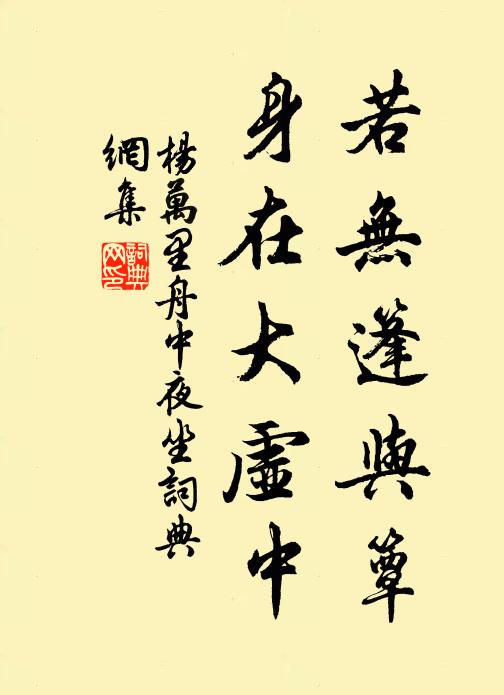 若無篷與簟
身在大虛中
楊萬里舟中夜坐詞典
網集
詞典
网印